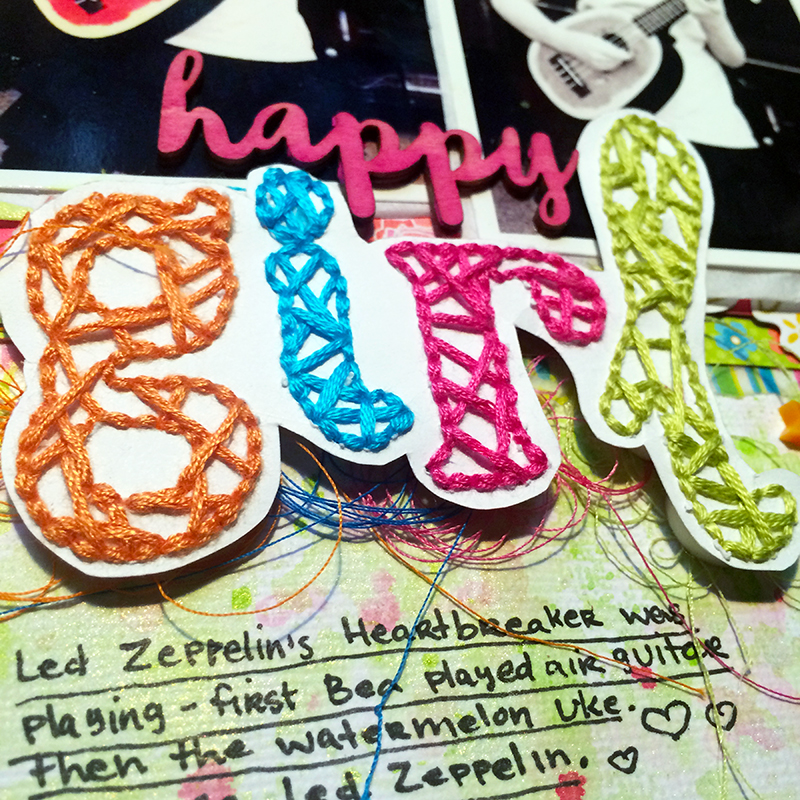 happy
girl
Led Zeppelin's Heartbreaker was
playing - first Bea played air guitar
Then the watermelon uke.
Led Zeppelin.